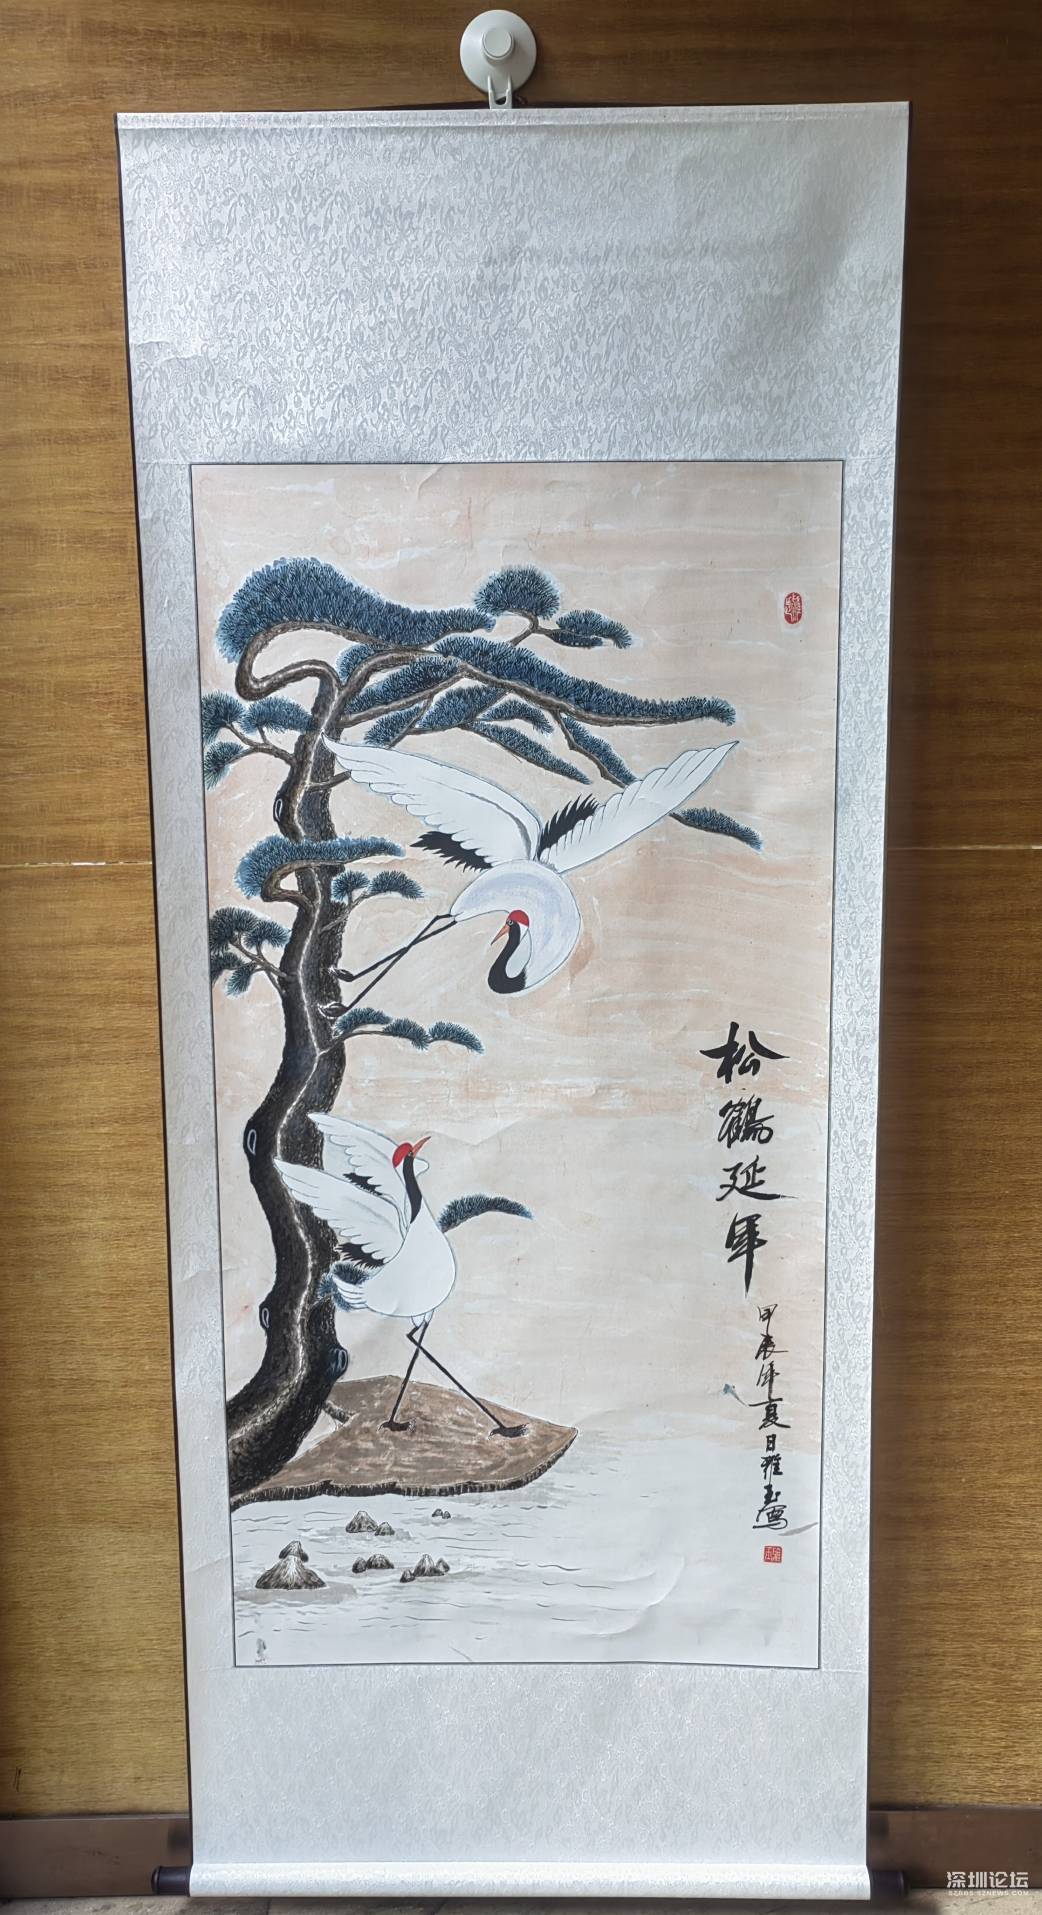 松鶴延年
甲辰年夏日雅玉寫
深圳论坛
SZBBS.SZNEWS.COM